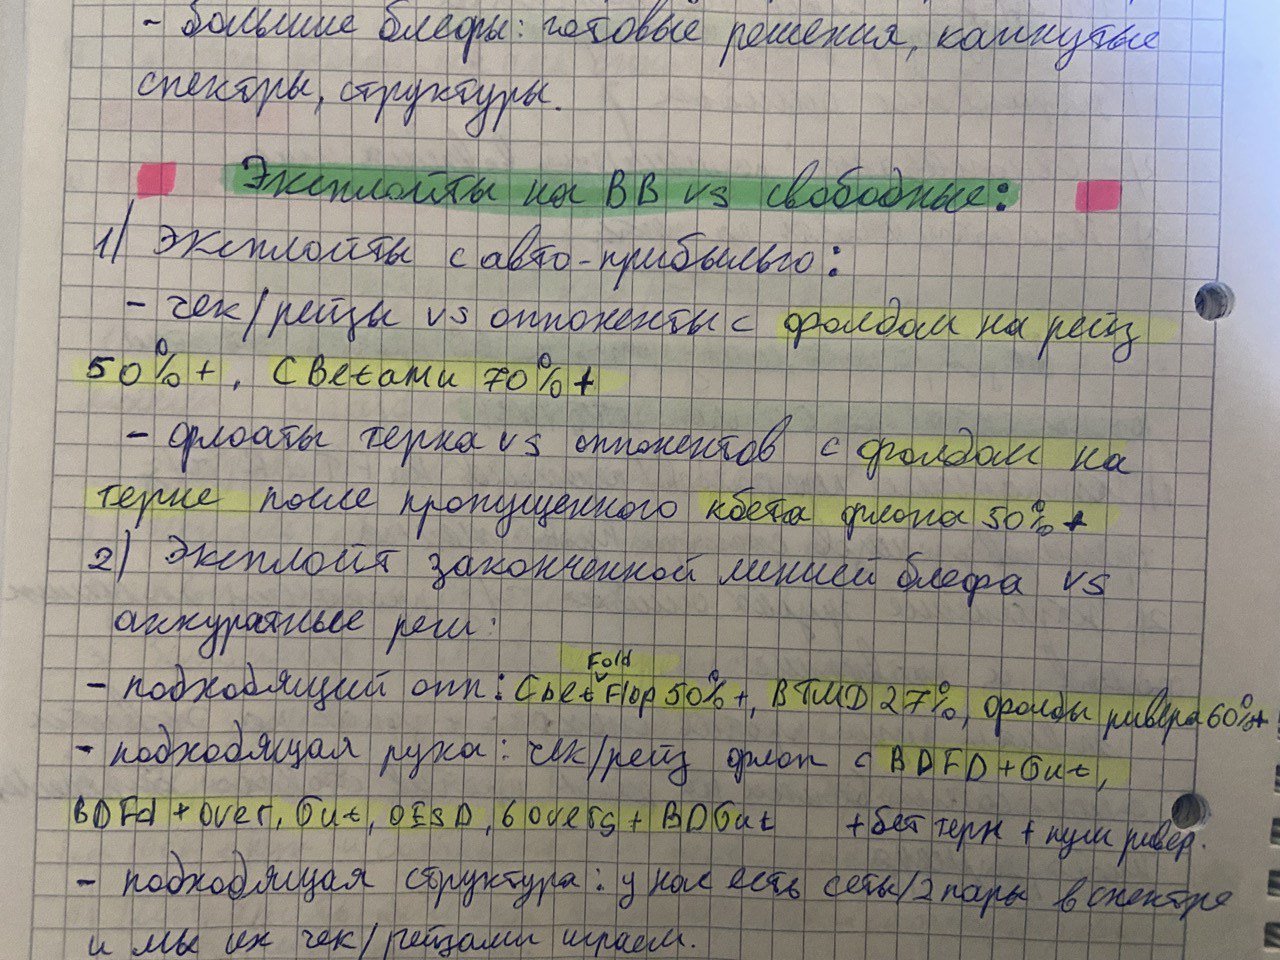 - большие блефы: готовые решения, каппутые
спектры, структуры.
Эксплойты на BB vs свободные:
1) Эксплойты с авто-прибылью:
- чек/рейзы vs оппоненты с фолдом на рейз
50%+, CBetами 70%+
- флоаты терна vs оппонентов с фолдом на
терне после пропущенного кбета флопа 50%+
2) Эксплойт законченной линией блефа vs
аккуратные реги:
Fold
- подходящий опп: Cbet Flop 50%+, ВТМD 27%, фолды ривера 60%+
- подходящая рука: чек/рейз флоп с BDFD+Gut,
BDFd + over, Gut, OESD, 6 overs + BDGut + бет терн + пуш ривер.
- подходящая структура: у нас есть сеты/2 пары в спектре
и мы их чек/рейзами играем.